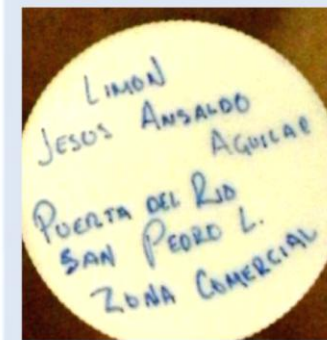 LIMON
JESUS ANSALDO
AGUILAR
PUERTA DEL RIO
SAN PEDRO L.
ZONA COMERCIAL